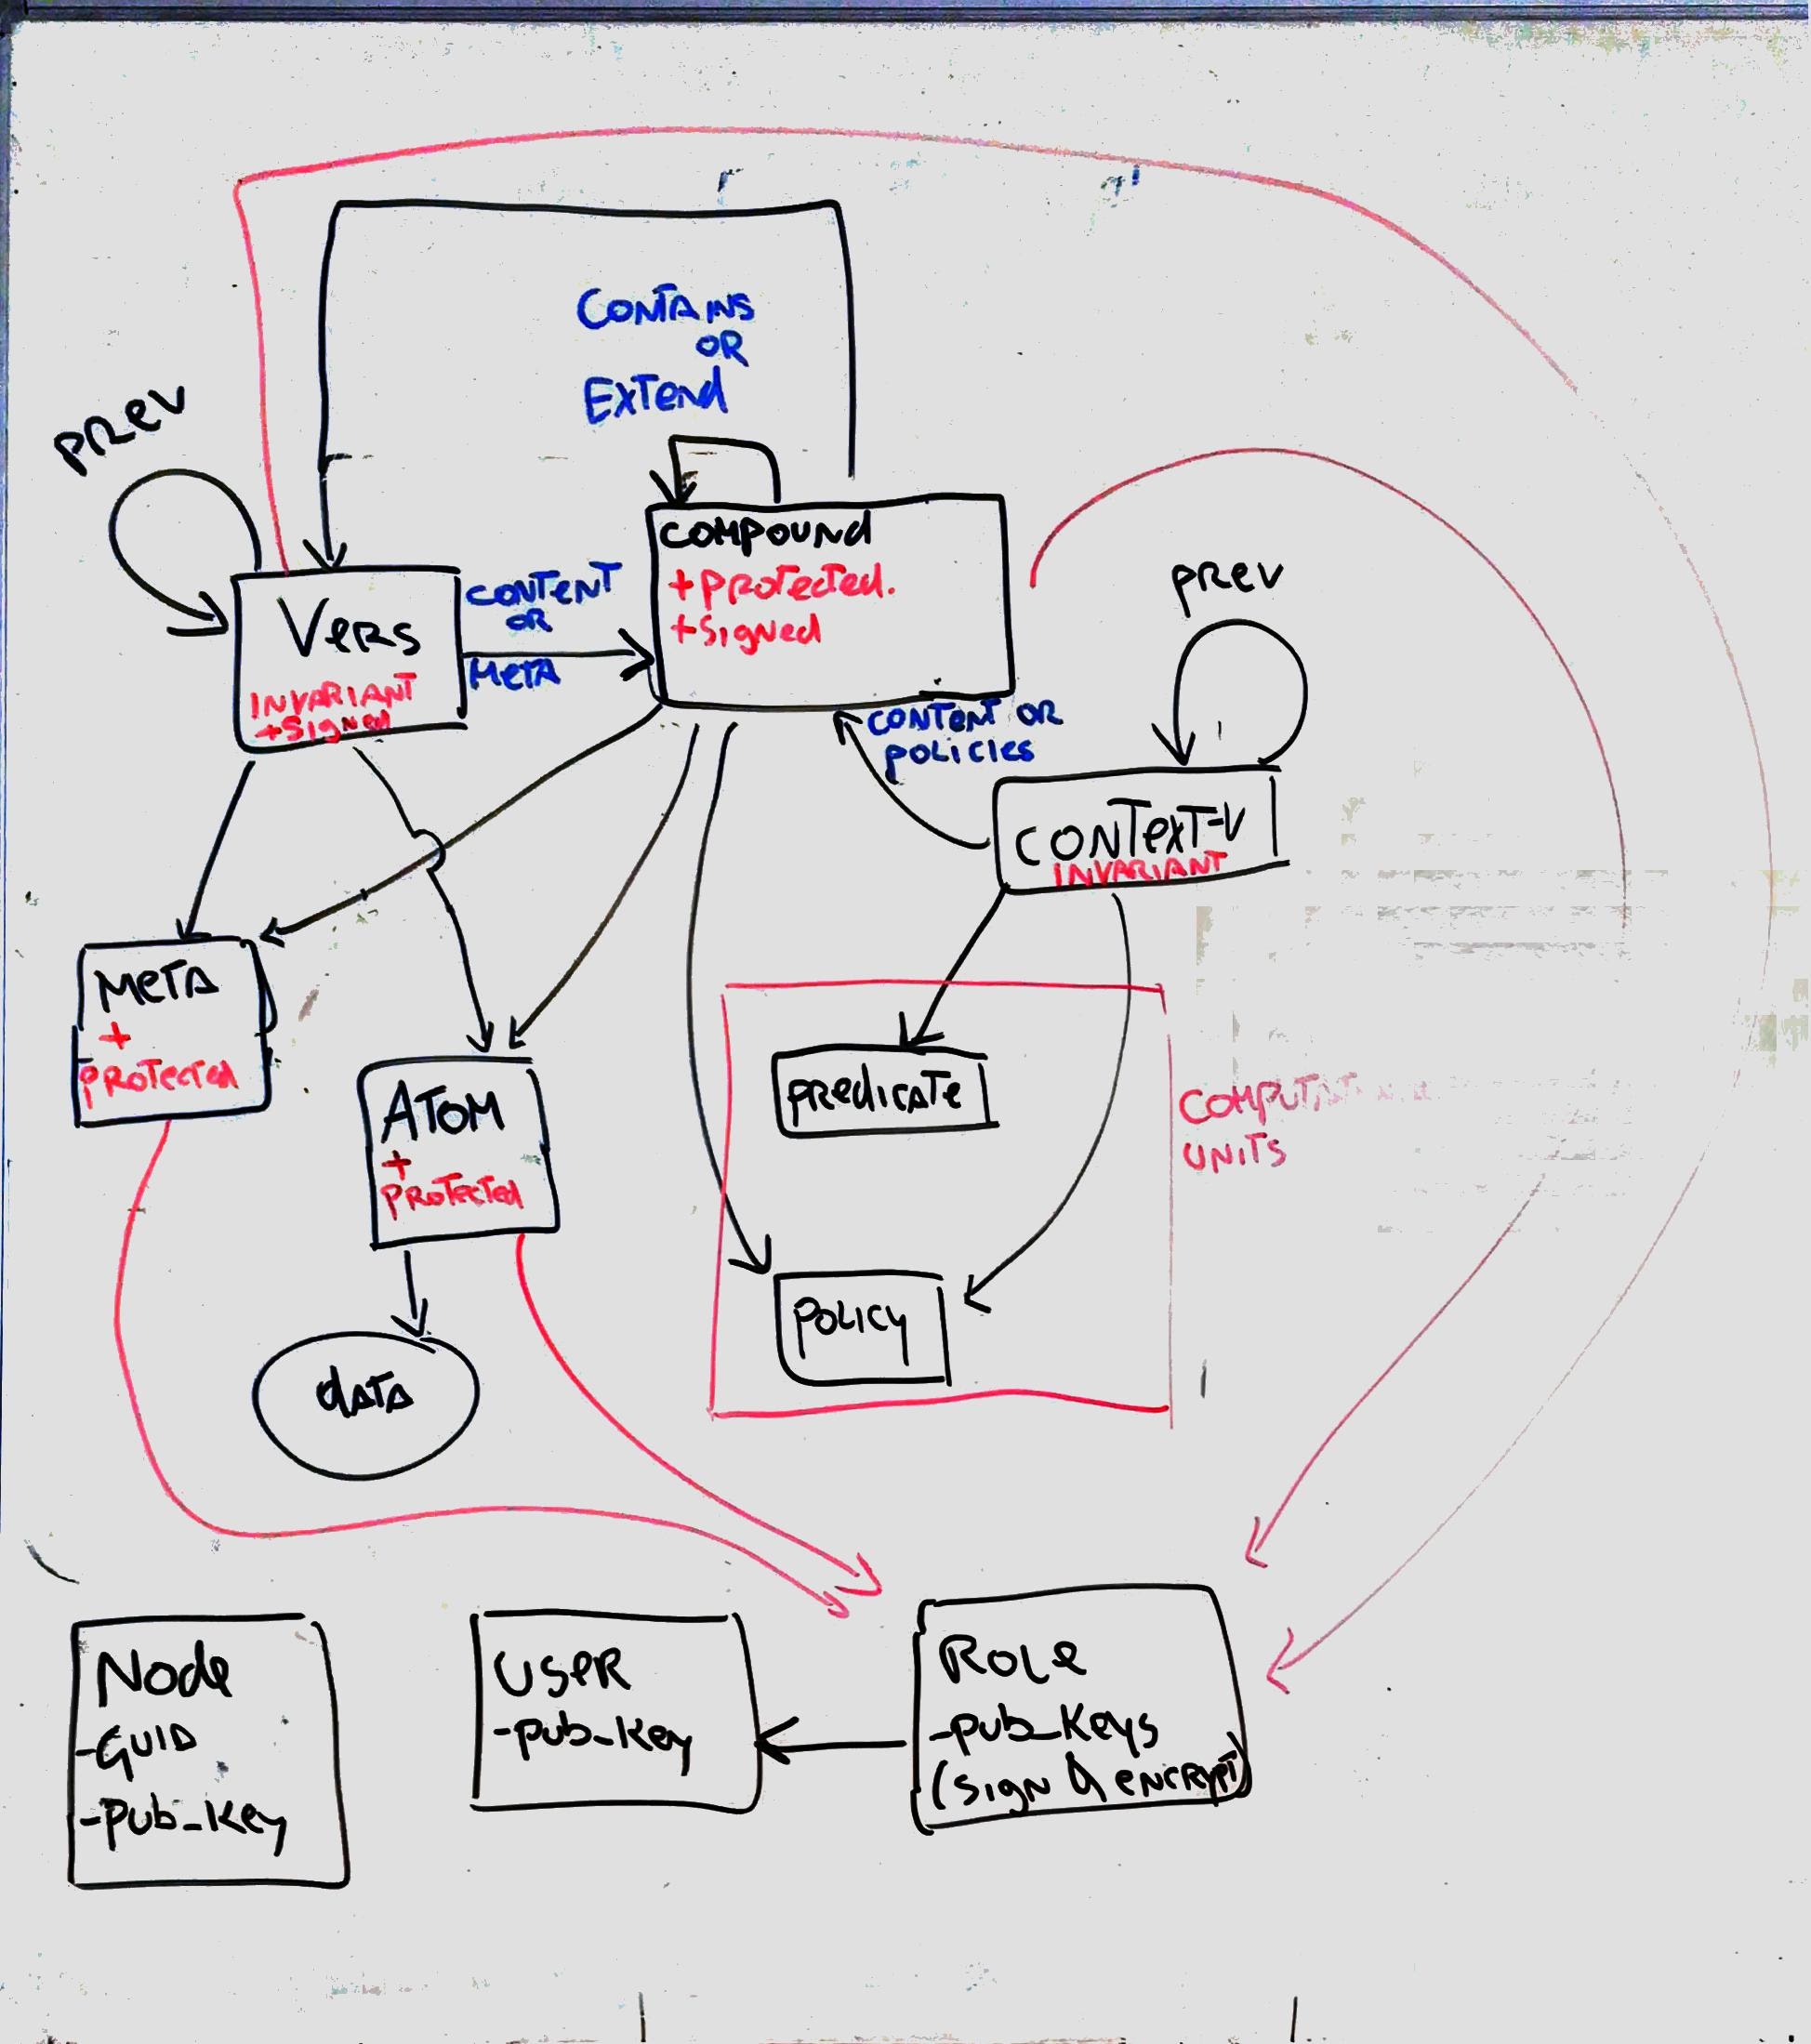 CONTAINS
OR
EXTEND
PREV
VERS
INVARIANT
+SIGNED
CONTENT
OR
META
COMPOUND
+PROTECTED.
+SIGNED
PREV
CONTENT OR
POLICIES
CONTEXT-V
INVARIANT
META
+
PROTECTED
ATOM
+
PROTECTED
PREDICATE
UNITS
POLICY
DATA
NODE
-GUID
-PUB_KEY
USER
-PUB_KEY
ROLE
-PUB_KEYS
(SIGN & ENCRYPT)